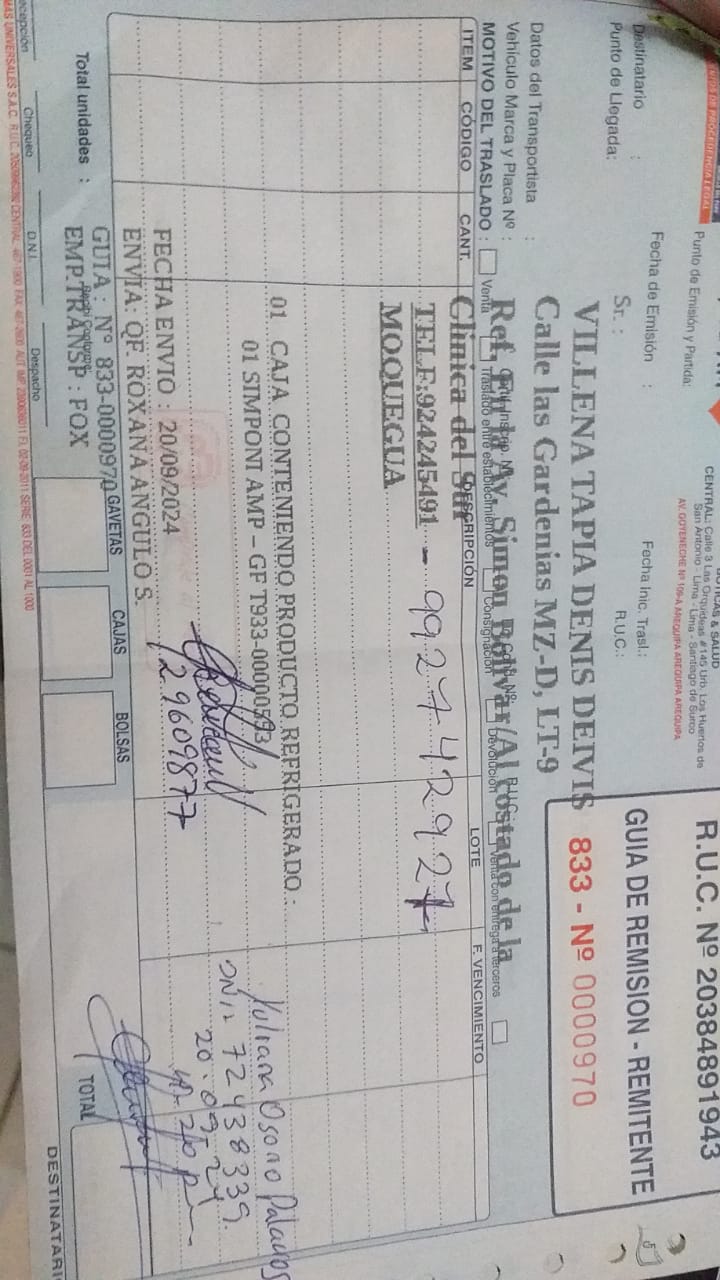 R.U.C. Nº 20384891943
GUIA DE REMISION - REMITENTE
833 - Nº 0000970
CENTRAL: Calle 3 Las Orquideas #145 Urb. Los Huertos de
San Antonio - Lima - Lima - Santiago de Surco
AV. GOYENECHE Nº 109-A AREQUIPA AREQUIPA AREQUIPA
Punto de Emisión y Partida:
Fecha de Emisión :
Fecha Inic. Trasl.:
Sr. :
R.U.C.:
Destinatario :
Punto de Llegada:
VILLENA TAPIA DENIS DEIVIS
Calle las Gardenias MZ-D, LT-9
Datos del Transportista :
Vehículo Marca y Placa Nº :
Ref. En la Av. Simon Bolivar/Al costado de la
Clinica del Sur
MOTIVO DEL TRASLADO : Venta Traslado entre establecimientos Consignación Devolución Venta con entrega a terceros
ITEM CÓDIGO CANT. DESCRIPCIÓN LOTE F. VENCIMIENTO
TELF:924245491 - 992742927
MOQUEGUA
01 CAJA CONTENIENDO PRODUCTO REFRIGERADO :
01 SIMPONI AMP – GF T933-00000593
29609877
Yuliana Osorio Palacios
DNI: 72438339.
20.09.24
FECHA ENVIO : 20/09/2024
ENVIA: QF. ROXANA ANGULO S.
GUIA : Nº 833-0000970
EMP.TRANSP : FOX
Recibi Conforme:
Total unidades :
GAVETAS CAJAS BOLSAS TOTAL
Chequeo D.N.I. Despacho
DESTINATARI